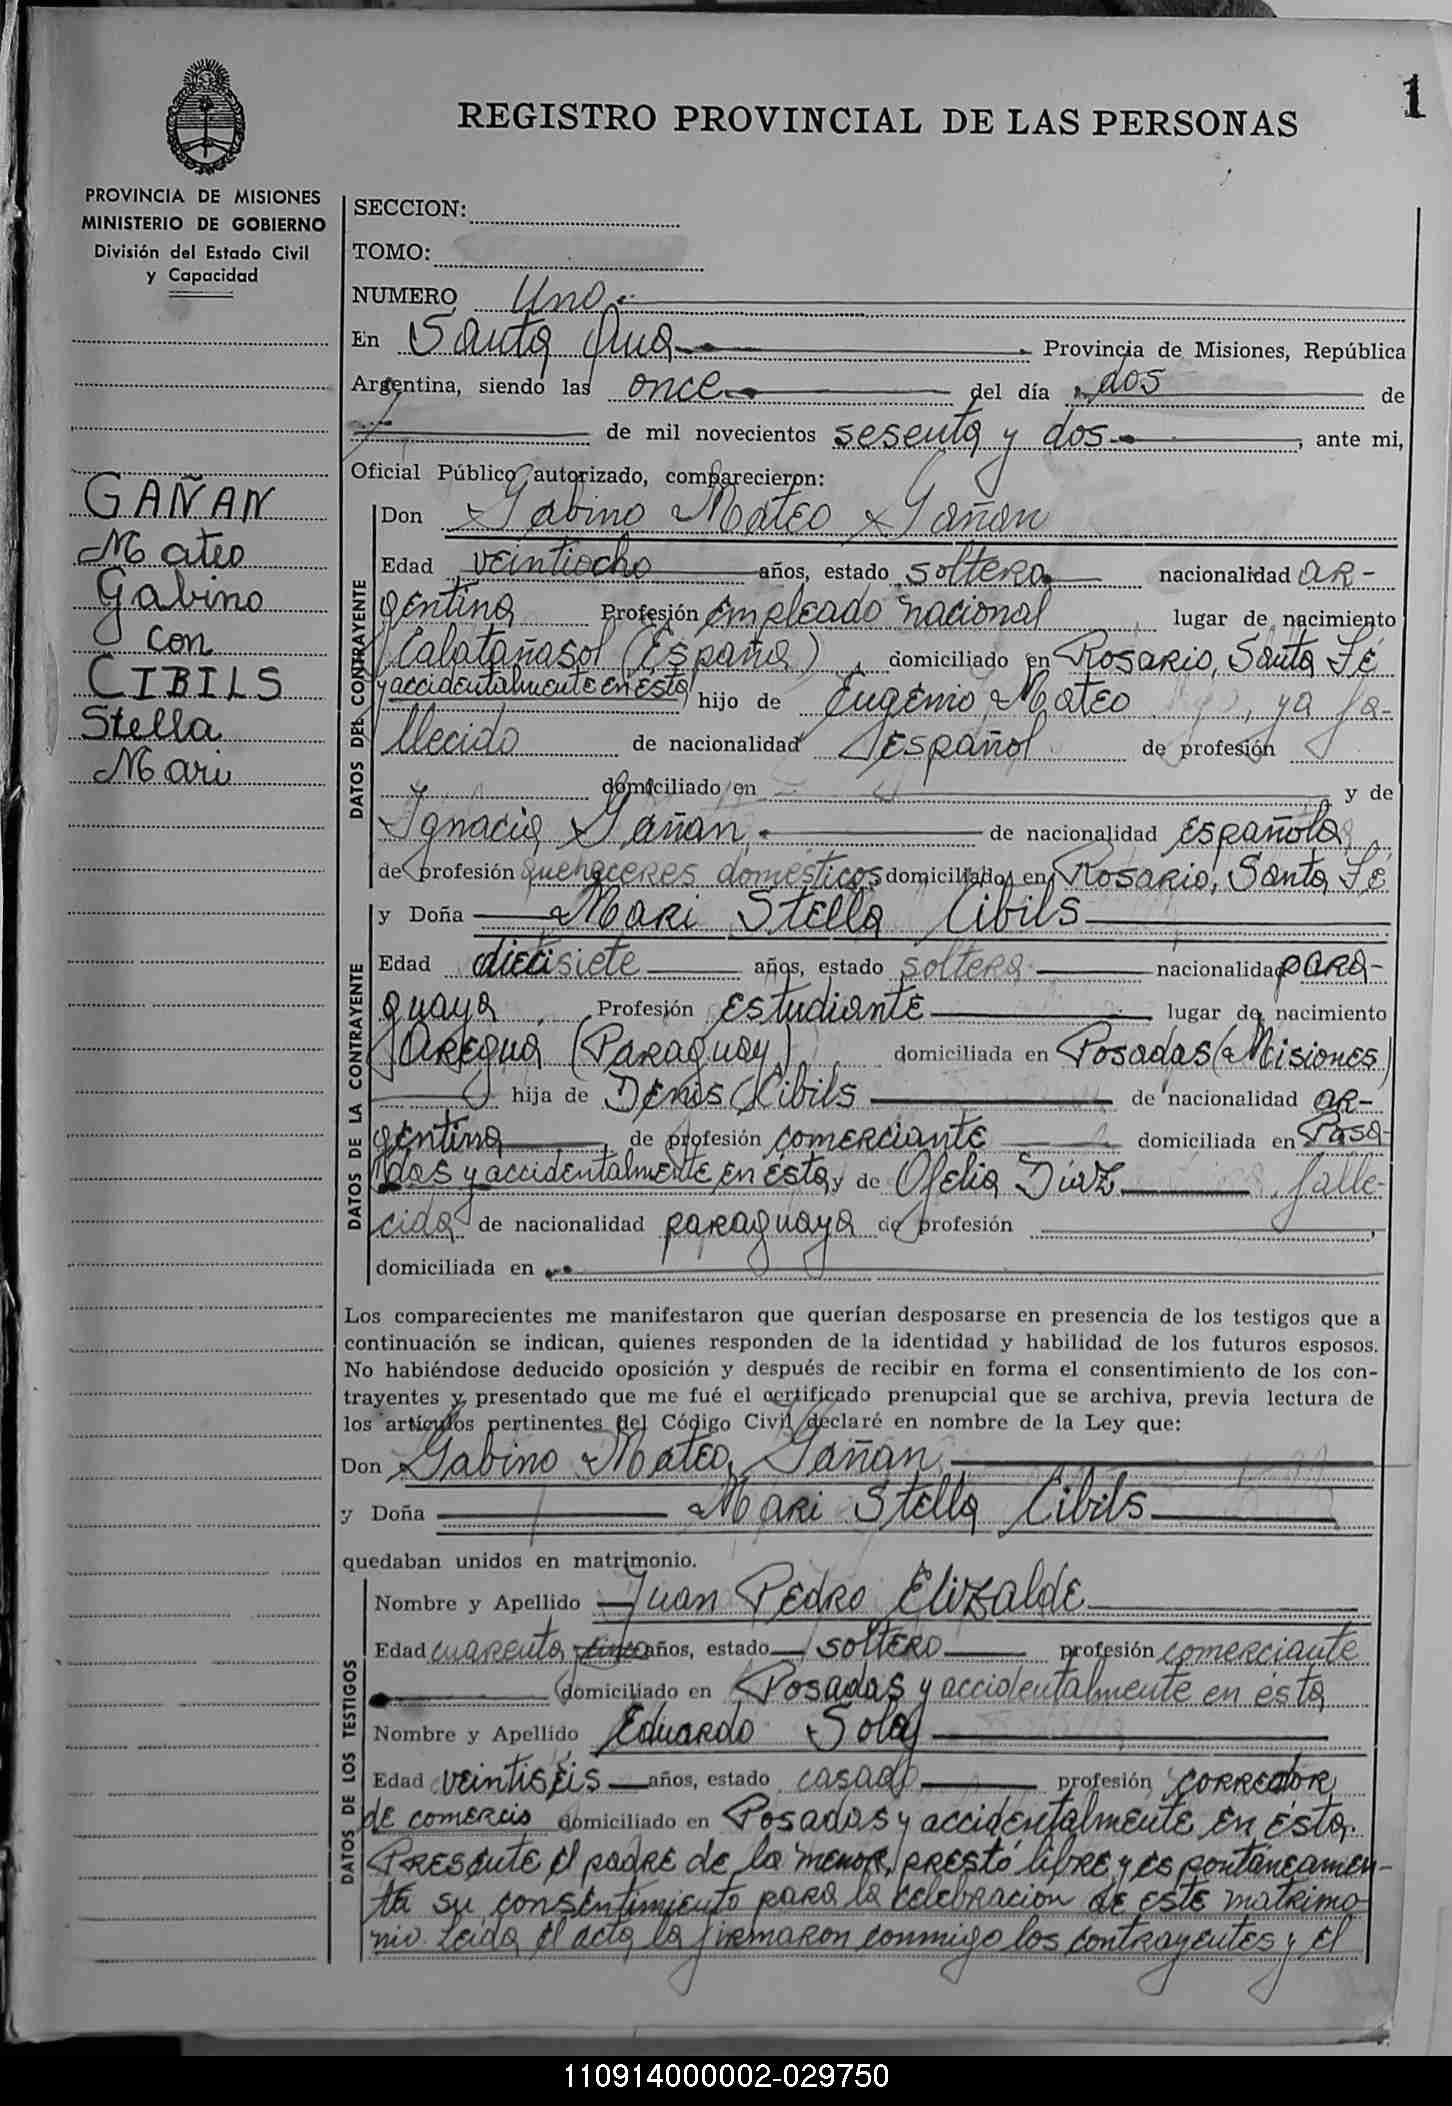 1
REGISTRO PROVINCIAL DE LAS PERSONAS
PROVINCIA DE MISIONES
MINISTERIO DE GOBIERNO
División del Estado Civil
y Capacidad
GAÑAN
Mateo
Gabino
con
CIBILS
Stella
Mari
SECCION:
TOMO:
NUMERO Uno
En Santa Ana Provincia de Misiones, República
Argentina, siendo las once del día dos de
de mil novecientos sesenta y dos, ante mi,
Oficial Público autorizado, comparecieron:
DATOS DEL CONTRAYENTE
Don Gabino Mateo Gañan
Edad veintiocho años, estado soltero nacionalidad ar-
gentina Profesión empleado nacional lugar de nacimiento
Calatañasol (España), domiciliado en Rosario, Santa Fé
y accidentalmente en esta hijo de Eugenio Mateo, ya fa-
llecido de nacionalidad español de profesión
domiciliado en y de
Ignacia Gañan, de nacionalidad española
de profesión quehaceres domésticos domiciliado en Rosario, Santa Fé
DATOS DE LA CONTRAYENTE
y Doña Mari Stella Cibils
Edad diecisiete años, estado soltera nacionalidad para-
guaya Profesión estudiante lugar de nacimiento
Areguá (Paraguay) domiciliada en Posadas (Misiones)
hija de Denis Cibils de nacionalidad ar-
gentina, de profesión comerciante domiciliada en Posa-
das y accidentalmente en ésta, y de Ofelia Díaz, falle-
cida de nacionalidad paraguaya de profesión
domiciliada en
Los comparecientes me manifestaron que querían desposarse en presencia de los testigos que a
continuación se indican, quienes responden de la identidad y habilidad de los futuros esposos.
No habiéndose deducido oposición y después de recibir en forma el consentimiento de los con-
trayentes y presentado que me fué el certificado prenupcial que se archiva, previa lectura de
los artículos pertinentes del Código Civil declaré en nombre de la Ley que:
Don Gabino Mateo Gañan
y Doña Mari Stella Cibils
quedaban unidos en matrimonio.
DATOS DE LOS TESTIGOS
Nombre y Apellido Juan Pedro Elizalde
Edad cuarenta cinco años, estado soltero profesión comerciante
domiciliado en Posadas y accidentalmente en ésta
Nombre y Apellido Eduardo Solaj
Edad veintiseis años, estado casado profesión corredor
de comercio domiciliado en Posadas y accidentalmente en ésta.
Presente el padre de la menor, prestó libre y espontaneamen-
te su consentimiento para la celebracion de este matrimo-
nio. Leida el acta la firmaron conmigo los contrayentes y el
110914000002-029750